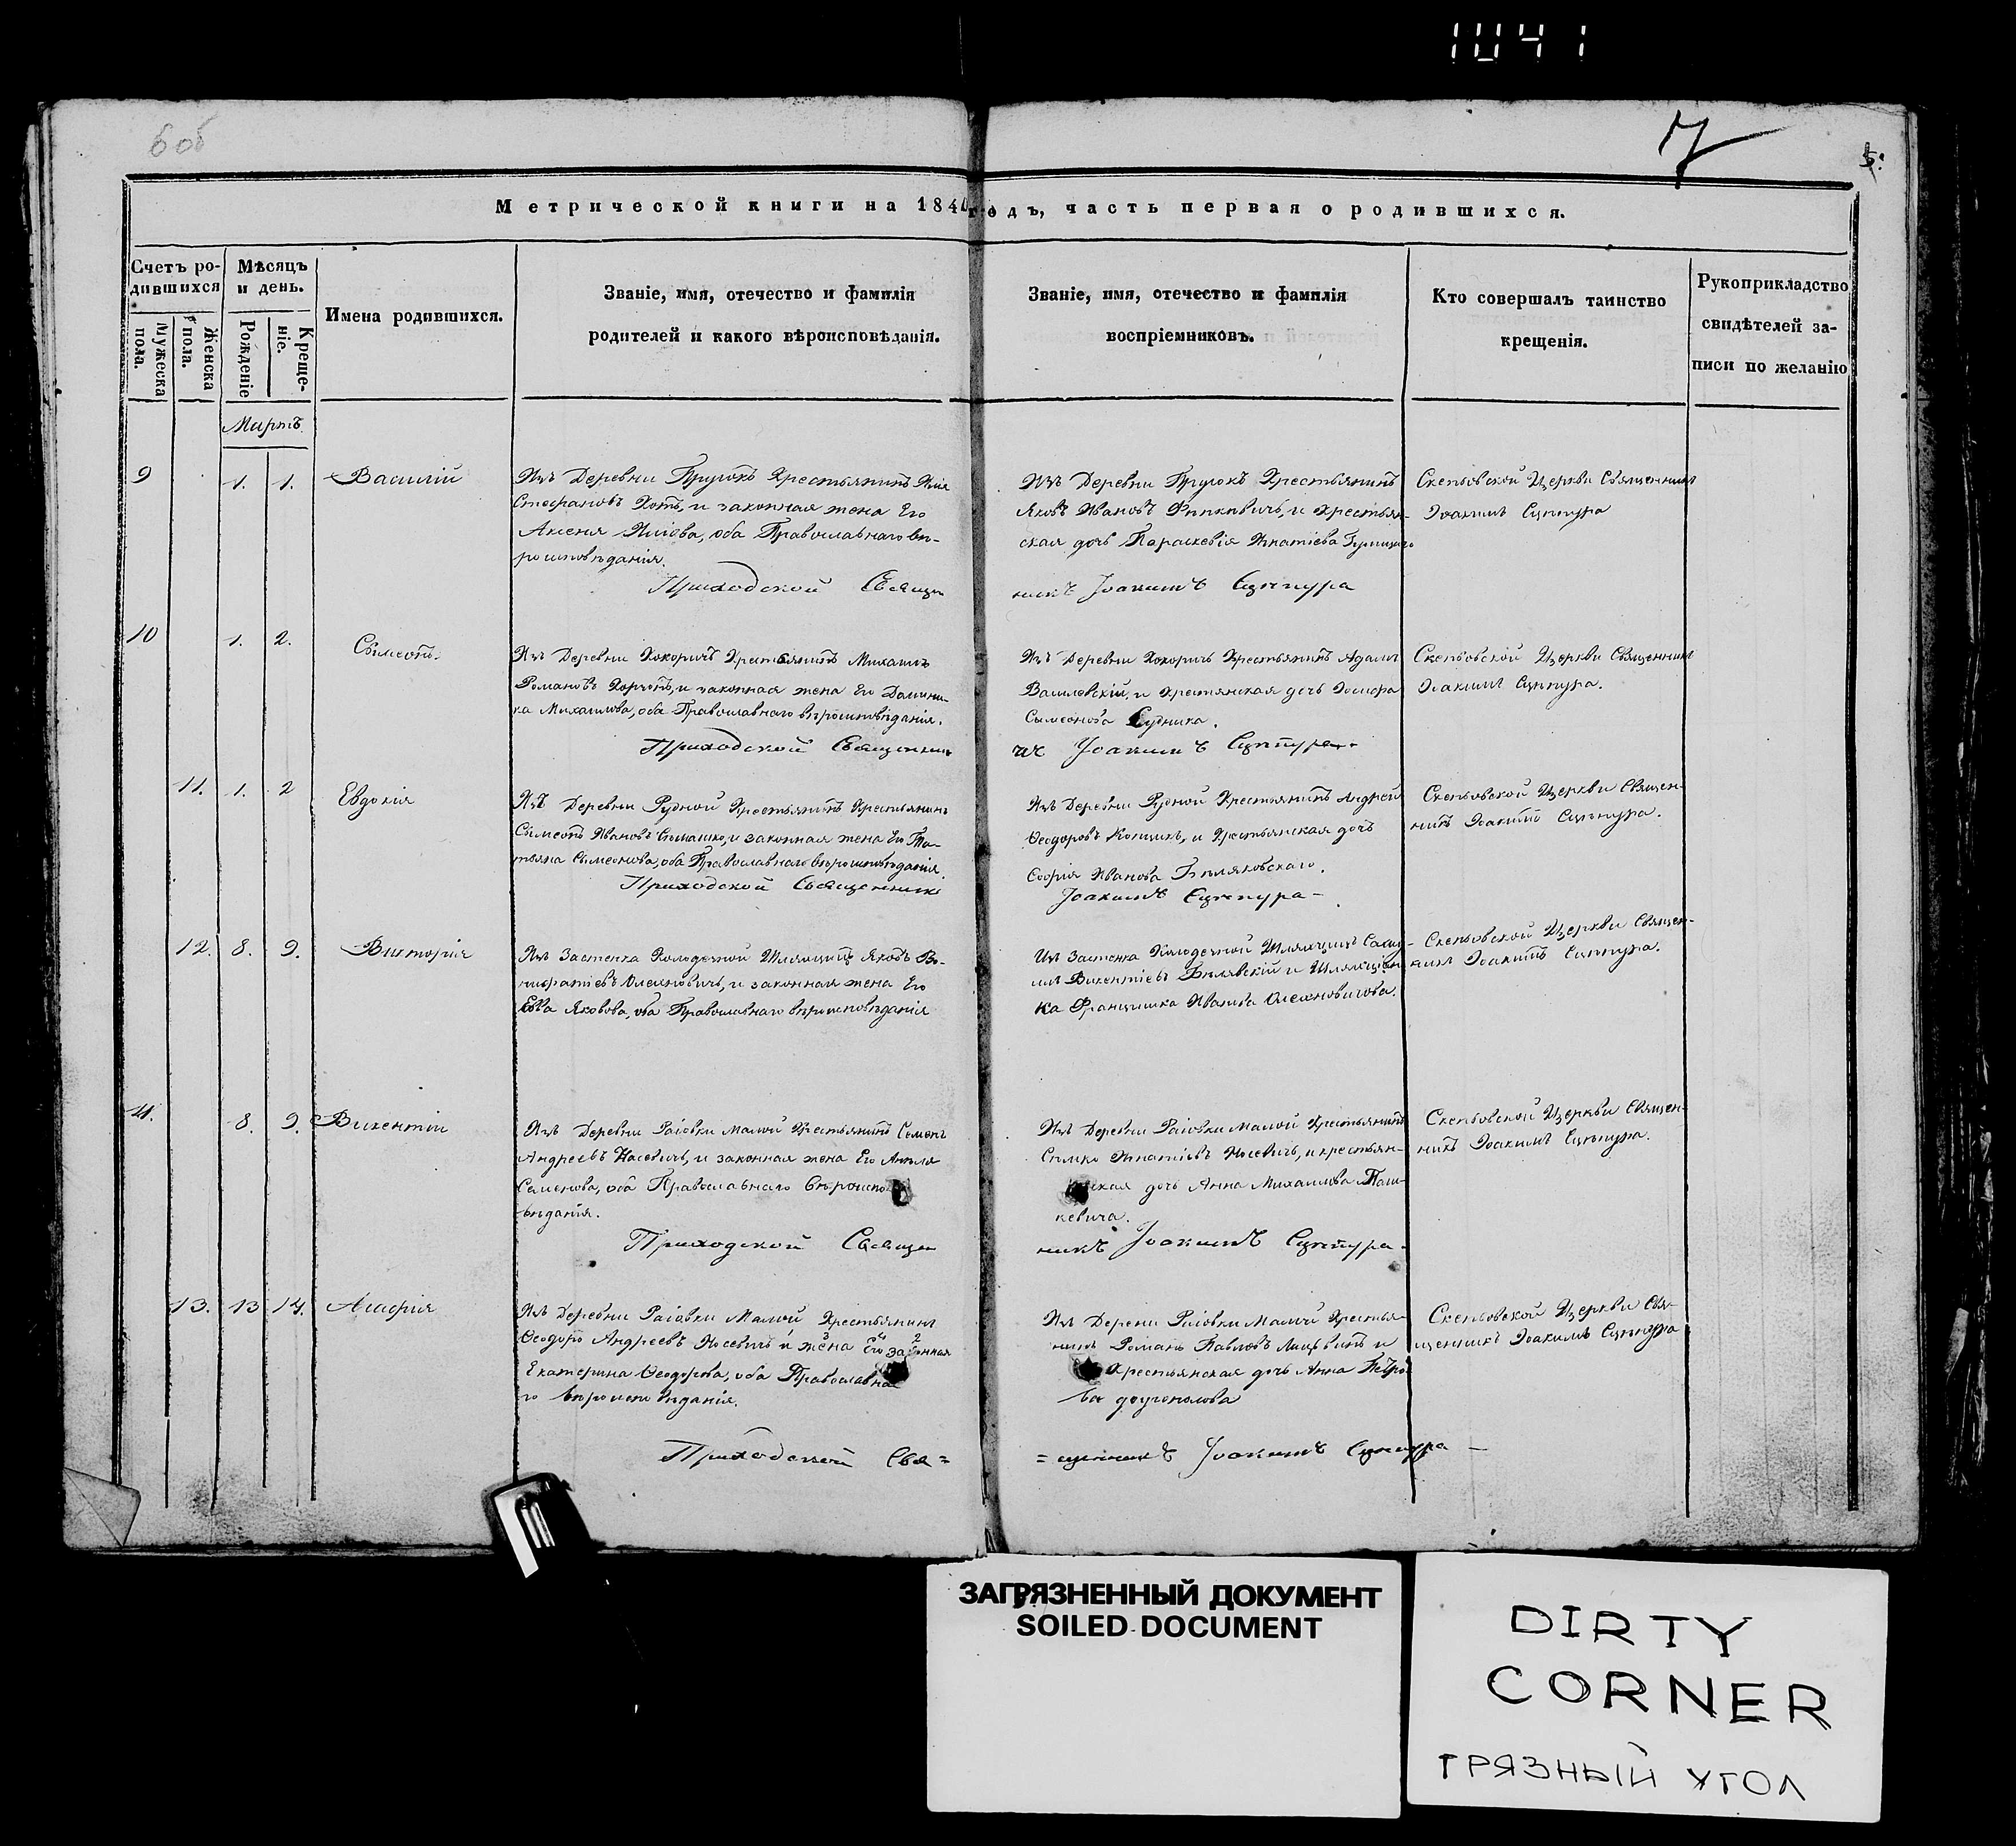 1041
6 об
7
5.
Метрической книги на 184 годъ, часть первая о родившихся.
Счетъ ро-
дившихся
Мужеска
пола.
Женска
пола.
Мѣсяцъ
и день.
Рожденіе
Креще-
ніе.
Имена родившихся.
Званіе, имя, отечество и фамилія
родителей и какого вѣроисповѣданія.
Званіе, имя, отечество и фамилія
воспріемниковъ.
Кто совершалъ таинство
крещенія.
Рукоприкладство
свидѣтелей за-
писи по желанію
Мартъ
9
1. 1.
Василій
Изъ Деревни Крестьянинъ Илія
Стефановъ и законная жена Его
Аксенія Иліева, оба Православнаго вѣ-
роисповѣданія.
Изъ Деревни Крестьянинъ
Яковъ Ивановъ и Крестьян-
ская дочь Параскевія Игнатіева
Священникъ
Іоакимъ Сцепура
Приходской Священ
никъ Іоакимъ Сцепура
10
1. 2.
Сѵмеонъ.
Изъ Деревни Хокоричъ Крестьянинъ Михаилъ
Романовъ и законная жена Его Домини-
ка Михаилова, оба Православнаго вѣроисповѣданія.
Изъ Деревни Хокоричъ Крестьянинъ Адамъ
Василевскій, и Крестянская дочь Іосифа
Сѵмеонова Судника.
Церкви Священникъ
Іоакимъ Сцепура.
Приходской Священни
къ Іоакимъ Сцепура
11. 1. 2
Евдокія
Изъ Деревни Рудной Крестьянинъ Крестьянинъ
Сѵмеонъ Ивановъ и законная жена Его Та-
тьяна Сѵмеонова, оба Православнаго вѣроисповѣданія.
Изъ Деревни Рудной Крестьянинъ Андрей
Ѳеодоровъ и Крестьянская дочь
Софія Иванова Бѣляковскаго.
Церкви Священ-
никъ Іоакимъ Сцепура.
Приходской Священникъ
Іоакимъ Сцепура
12. 8. 9.
Викторія
Изъ Застенка Холодечной Шляхтичъ Яковъ Бо-
нифатіевъ Олехновичъ, и законная жена Его
Евва Яковова, оба Православнаго вѣроисповѣданія
Изъ Застенка Холодечной Шляхтичъ Саму-
илъ Викентіевъ Бѣлявскій и Шляхтян-
ка Францишка Иванова Олехновичова.
Церкви Священ-
никъ Іоакимъ Сцепура.
11.
8. 9.
Викентій
Изъ Деревни Раіовки Малой Крестьянинъ Семенъ
Андреевъ Носевичъ, и законная жена Его
Семенова, оба Православнаго вѣроиспо
вѣданія.
Изъ Деревни Раіовки Малой Крестьянинъ
Игнатіевъ Носевичъ, и крестьян-
ская дочь Анна Михаилова Паш-
кевича.
Церкви Священ-
никъ Іоакимъ Сцепура.
Приходской Священ
никъ Іоакимъ Сцепура
13. 13 14.
Агафія
Изъ Деревни Раіовки Малой Крестьянинъ
Ѳеодоръ Андреевъ Носевичъ и жена Его законная
Екатерина Ѳеодорова, оба Православна
го вѣроисповѣданія.
Изъ Дерени Раіовки Малой Крестья-
нинъ Романъ Павловъ и
Крестьянская дочь Анна Петро
ва
Церкви Свя-
щенникъ Іоакимъ Сцепура
Приходской Свя=
=щенникъ Іоакимъ Сцепура
ЗАГРЯЗНЕННЫЙ ДОКУМЕНТ
SOILED DOCUMENT
DIRTY
CORNER
ГРЯЗНЫЙ УГОЛ